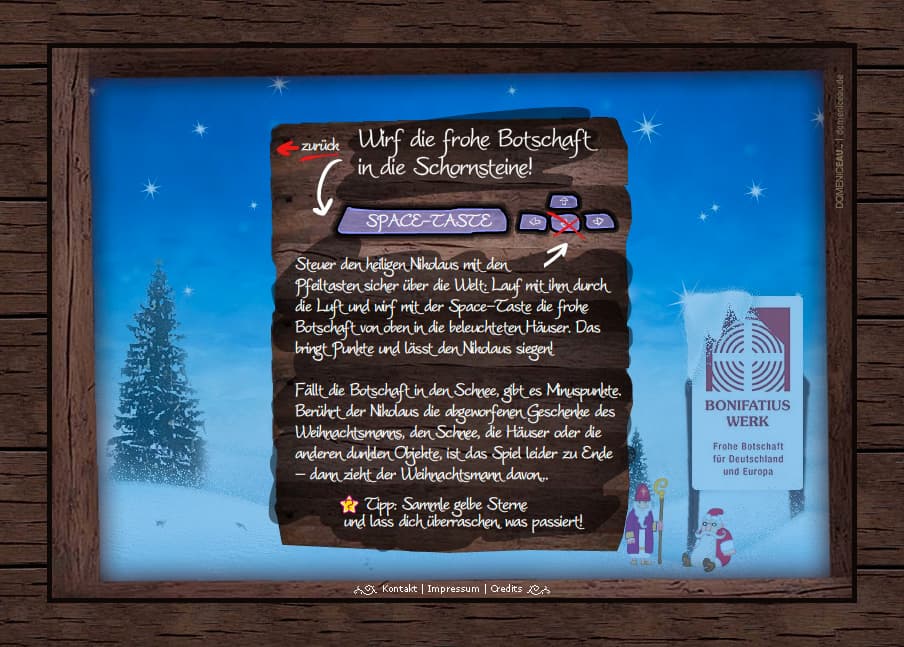 zurück
Wirf die frohe Botschaft
in die Schornsteine!
SPACE-TASTE
Steuer den heiligen Nikolaus mit den
Pfeiltasten sicher über die Welt: Lauf mit ihm durch
die Luft und wirf mit der Space-Taste die frohe
Botschaft von oben in die beleuchteten Häuser. Das
bringt Punkte und lässt den Nikolaus siegen!
Fällt die Botschaft in den Schnee, gibt es Minuspunkte.
Berührt der Nikolaus die abgeworfenen Geschenke des
Weihnachtsmanns, den Schnee, die Häuser oder die
anderen dunklen Objekte, ist das Spiel leider zu Ende
– dann zieht der Weihnachtsmann davon...
Tipp: Sammle gelbe Sterne
und lass dich überraschen, was passiert!
BONIFATIUS
WERK
Frohe Botschaft
für Deutschland
und Europa
DOMENICEAU_ | domeniceau.de
Kontakt | Impressum | Credits